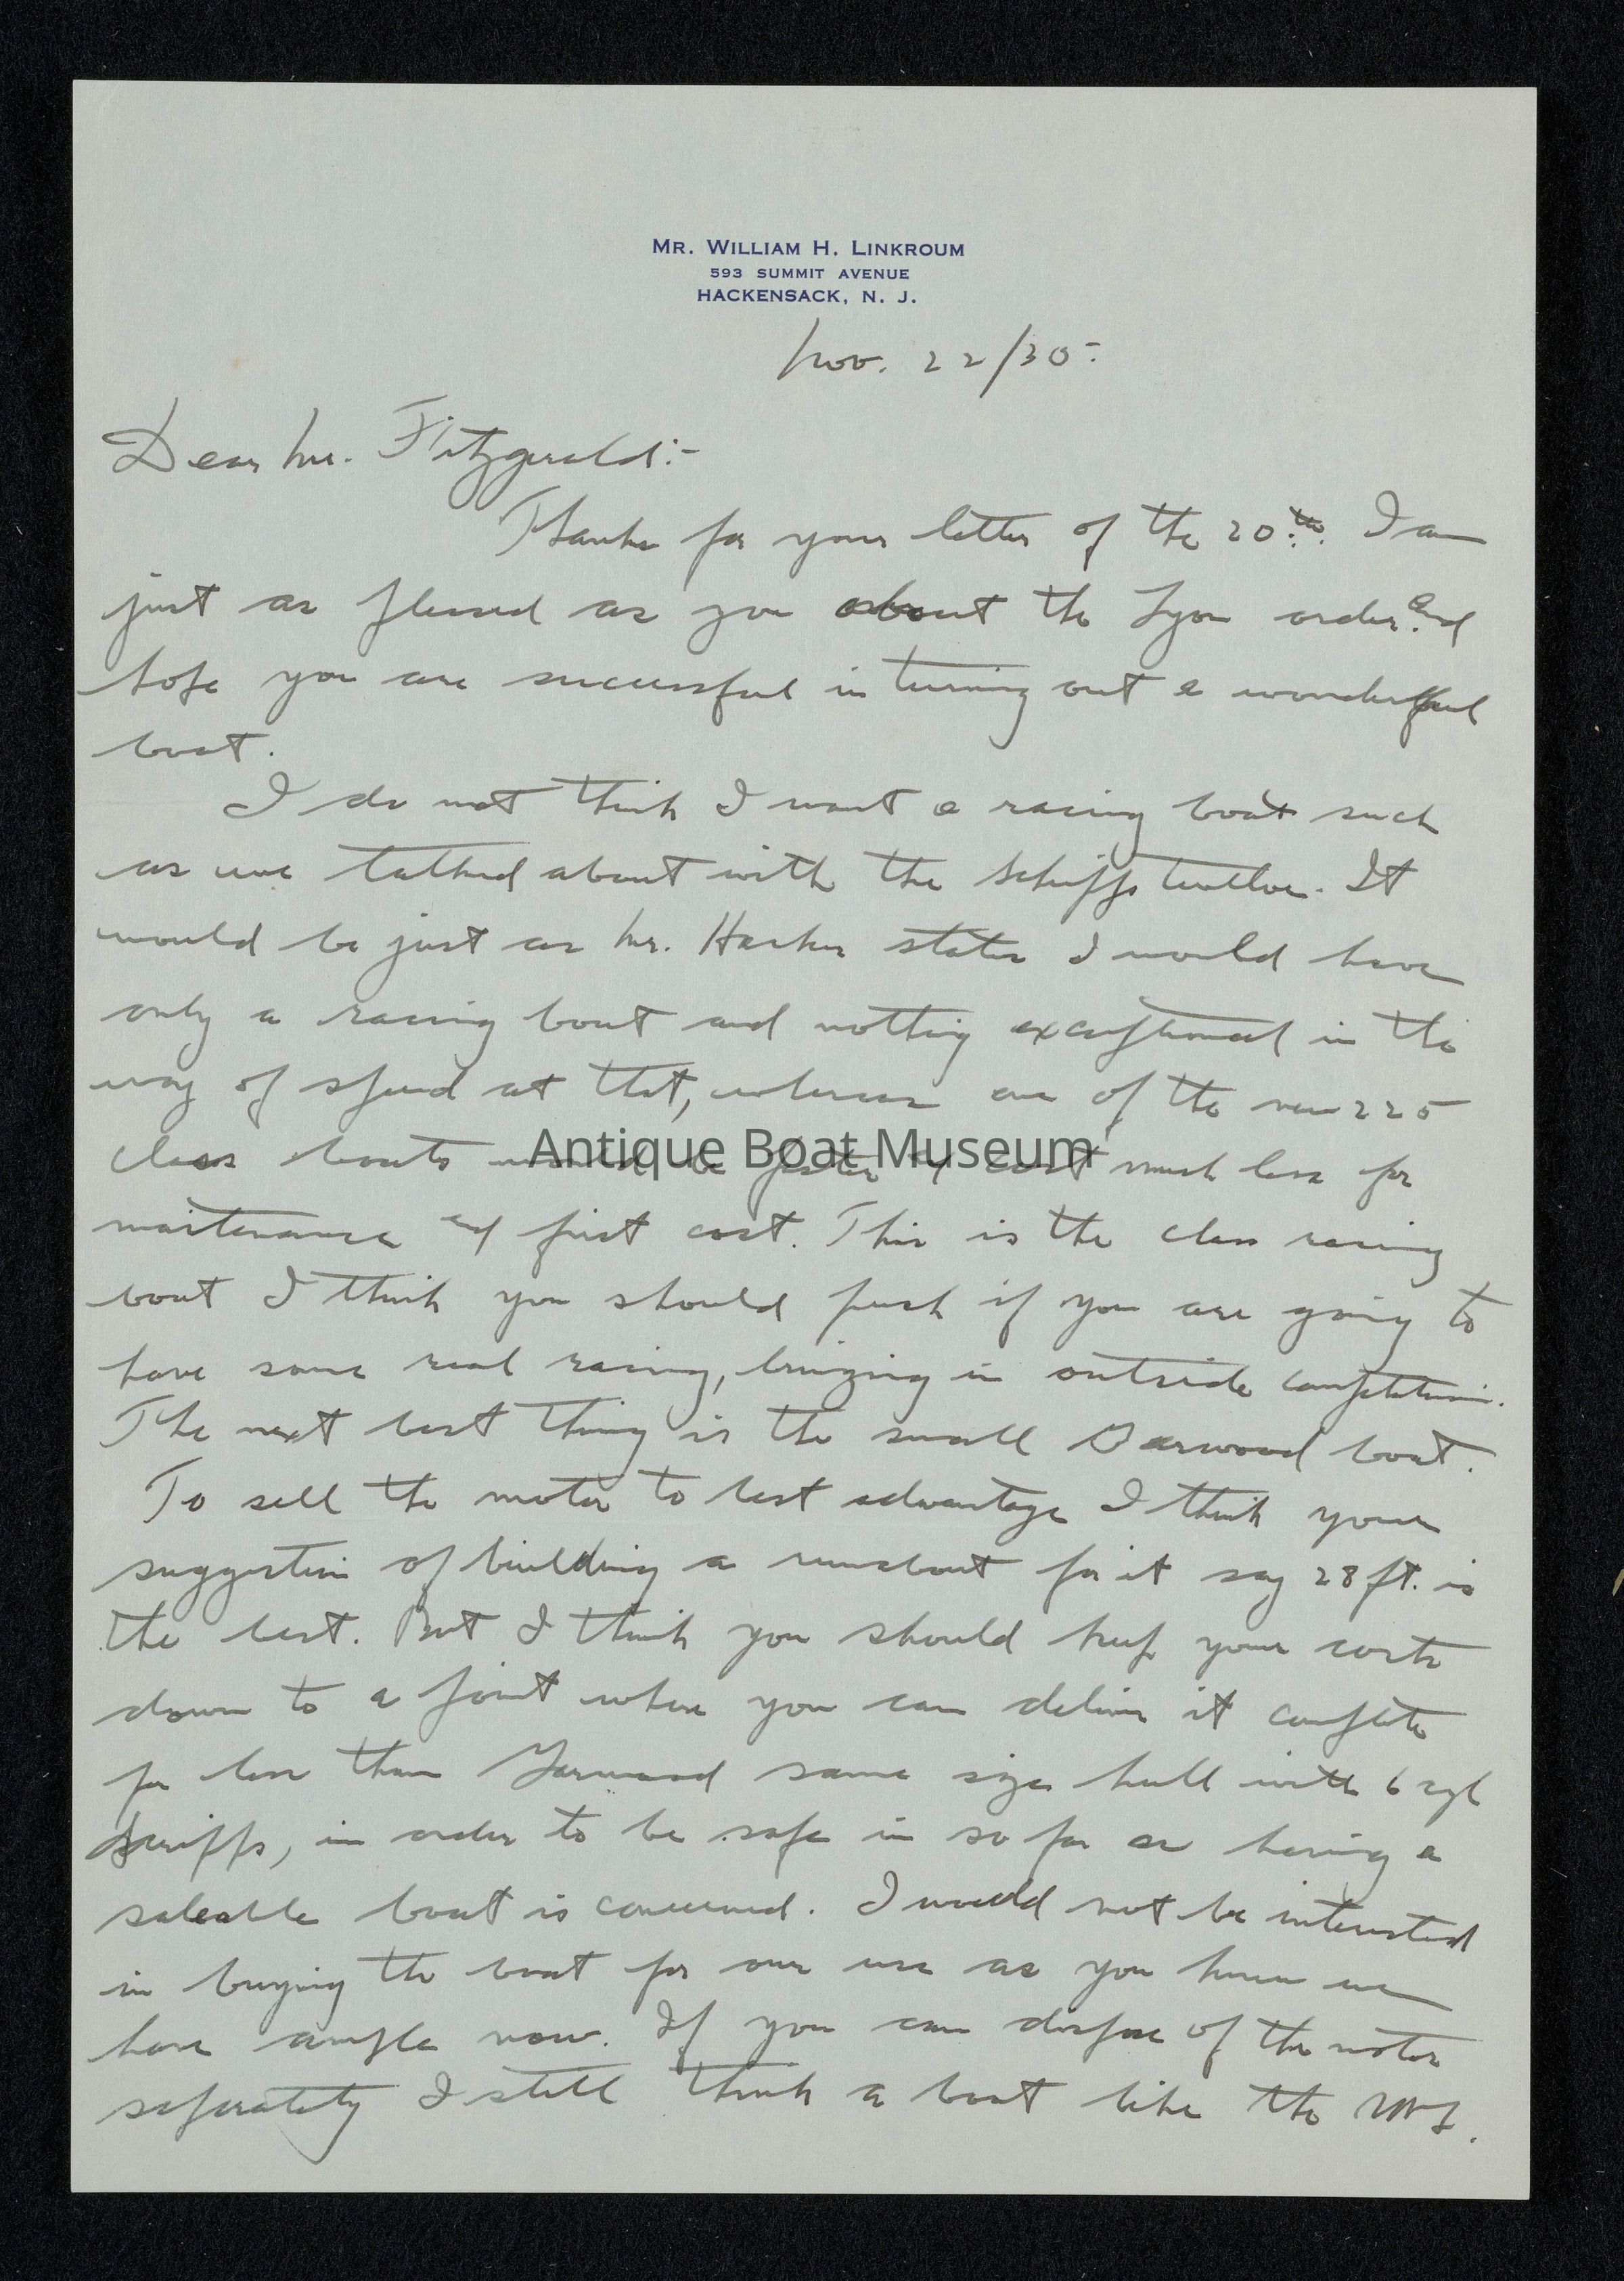 MR. WILLIAM H. LINKROUM
593 SUMMIT AVENUE
HACKENSACK, N. J.
Nov. 22/30.
Dear Mr. Fitzgerald:-
Thanks for your letter of the 20th. I am
just as pleased as you about the Lyon order and
hope you are successful in turning out a wonderful
boat.
I do not think I want a racing boat such
as we talked about with the Scripps twelve. It
would be just as Mr. Hacker states I would have
only a racing boat and nothing exceptional in the
way of speed at that, whereas one of the new 225
class boats would be faster & cost much less for
maitenance and first cost. This is the class racing
boat I think you should push if you are going to
have some real racing, bringing in outside competition.
The next best thing is the small Garwood boat.
To sell the motor to best advantage I think your
suggestion of building a runabout for it say 28 ft. is
the best. But I think you should keep your costs
down to a point where you can deliver it complete
for less than Garwood same size hull with 6 cyl
Scripps, in order to be safe in so far as having a
saleable boat is concerned. I would not be interested
in buying the boat for our use as you know we
have ample now. If you can dispose of the motor
seperately I still think a boat like the
Antique Boat Museum